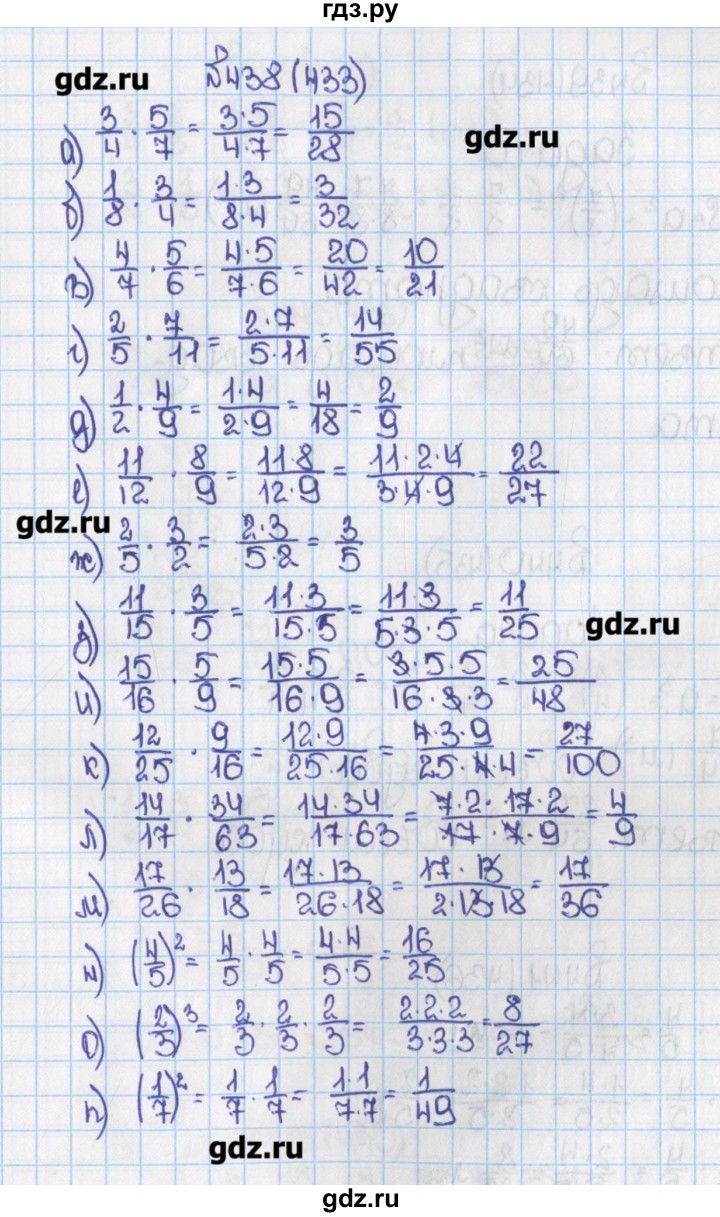 гдз.ру
gdz.ru
№438 (433)
gdz.ru
а) 3/4 · 5/7 = 3·5/4·7 = 15/28
б) 1/8 · 3/4 = 1·3/8·4 = 3/32
в) 4/7 · 5/6 = 4·5/7·6 = 20/42 = 10/21
г) 2/5 · 7/11 = 2·7/5·11 = 14/55
д) 1/2 · 4/9 = 1·4/2·9 = 4/18 = 2/9
е) 11/12 · 8/9 = 11·8/12·9 = 11·2·4/3·4·9 = 22/27
gdz.ru
ж) 2/5 · 3/2 = 2·3/5·2 = 3/5
з) 11/15 · 3/5 = 11·3/15·5 = 11·3/5·3·5 = 11/25
gdz.ru
и) 15/16 · 5/9 = 15·5/16·9 = 3·5·5/16·3·3 = 25/48
к) 12/25 · 9/16 = 12·9/25·16 = 4·3·9/25·4·4 = 27/100
л) 14/17 · 34/63 = 14·34/17·63 = 7·2·17·2/17·7·9 = 4/9
м) 17/26 · 13/18 = 17·13/26·18 = 17·13/2·13·18 = 17/36
н) (4/5)² = 4/5 · 4/5 = 4·4/5·5 = 16/25
о) (2/3)³ = 2/3 · 2/3 · 2/3 = 2·2·2/3·3·3 = 8/27
п) (1/7)² = 1/7 · 1/7 = 1·1/7·7 = 1/49
gdz.ru
gdz.ru